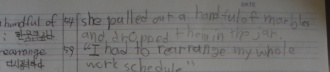 handful of 54 she pulled out a handful of marbles
and dropped them in the jar.
rearrange 59 "I had to rearrange my whole
work schedule"